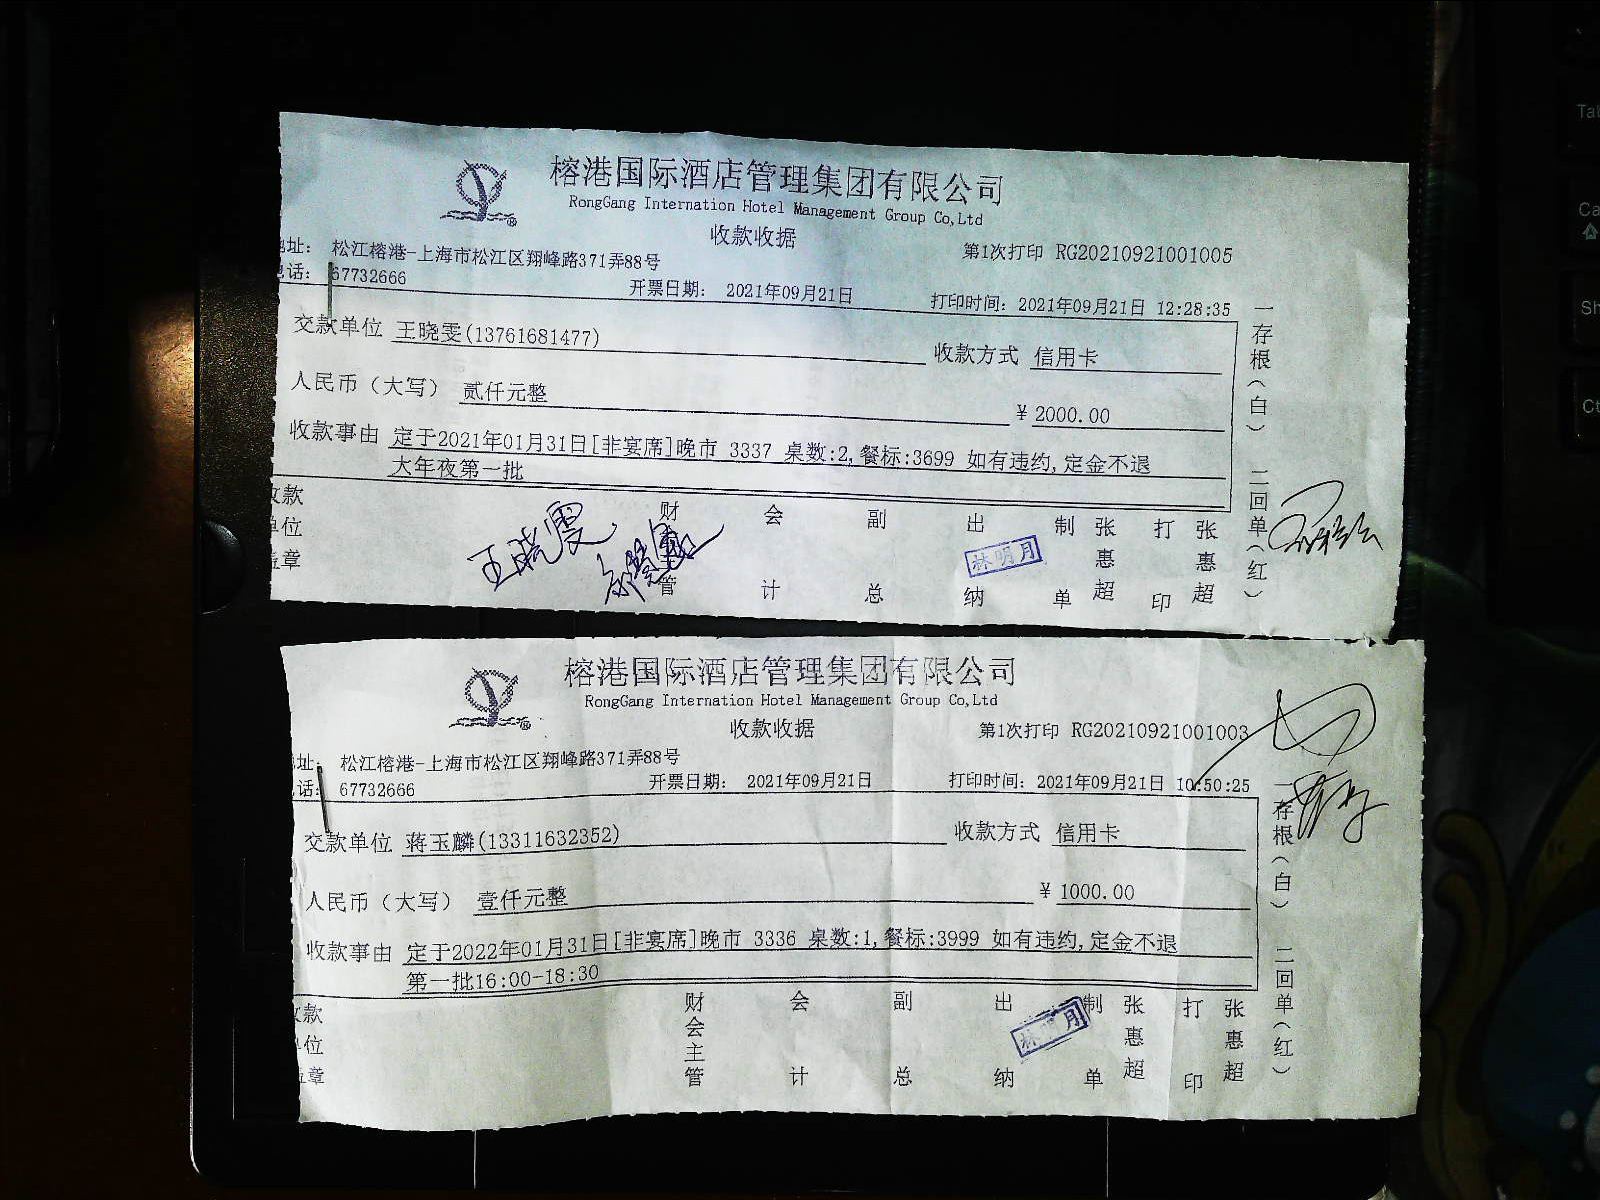 榕港国际酒店管理集团有限公司
RongGang Internation Hotel Management Group Co,Ltd
收款收据
第1次打印 RG20210921001005
址: 松江榕港-上海市松江区翔峰路371弄88号
话: 67732666
开票日期: 2021年09月21日
打印时间: 2021年09月21日 12:28:35
交款单位 王晓雯(13761681477)
收款方式 信用卡
人民币(大写) 贰仟元整
¥ 2000.00
收款事由 定于2021年01月31日[非宴席]晚市 3337 桌数:2,餐标:3699 如有违约,定金不退
大年夜第一批
收款单位盖章
王晓雯
财会主管
会计
副总
出纳
林明月
制单
张惠超
打印
张惠超
一存根(白) 二回单(红)
榕港国际酒店管理集团有限公司
RongGang Internation Hotel Management Group Co,Ltd
收款收据
第1次打印 RG20210921001003
址: 松江榕港-上海市松江区翔峰路371弄88号
话: 67732666
开票日期: 2021年09月21日
打印时间: 2021年09月21日 10:50:25
交款单位 蒋玉麟(13311632352)
收款方式 信用卡
人民币(大写) 壹仟元整
¥ 1000.00
收款事由 定于2022年01月31日[非宴席]晚市 3336 桌数:1,餐标:3999 如有违约,定金不退
第一批16:00-18:30
收款单位盖章
财会主管
会计
副总
出纳
林明月
制单
张惠超
打印
张惠超
一存根(白) 二回单(红)